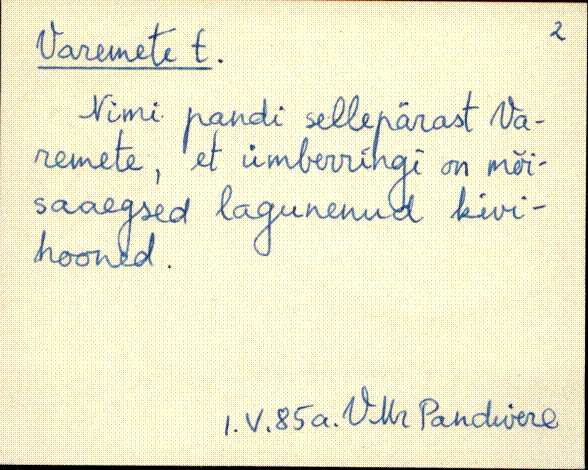 2
Varemete t.
Nimi pandi sellepärast Va-
remete, et ümberringi on mõi-
saaegsed lagunenud kivi-
hooned.
1.V.85a. VMr Pandivere